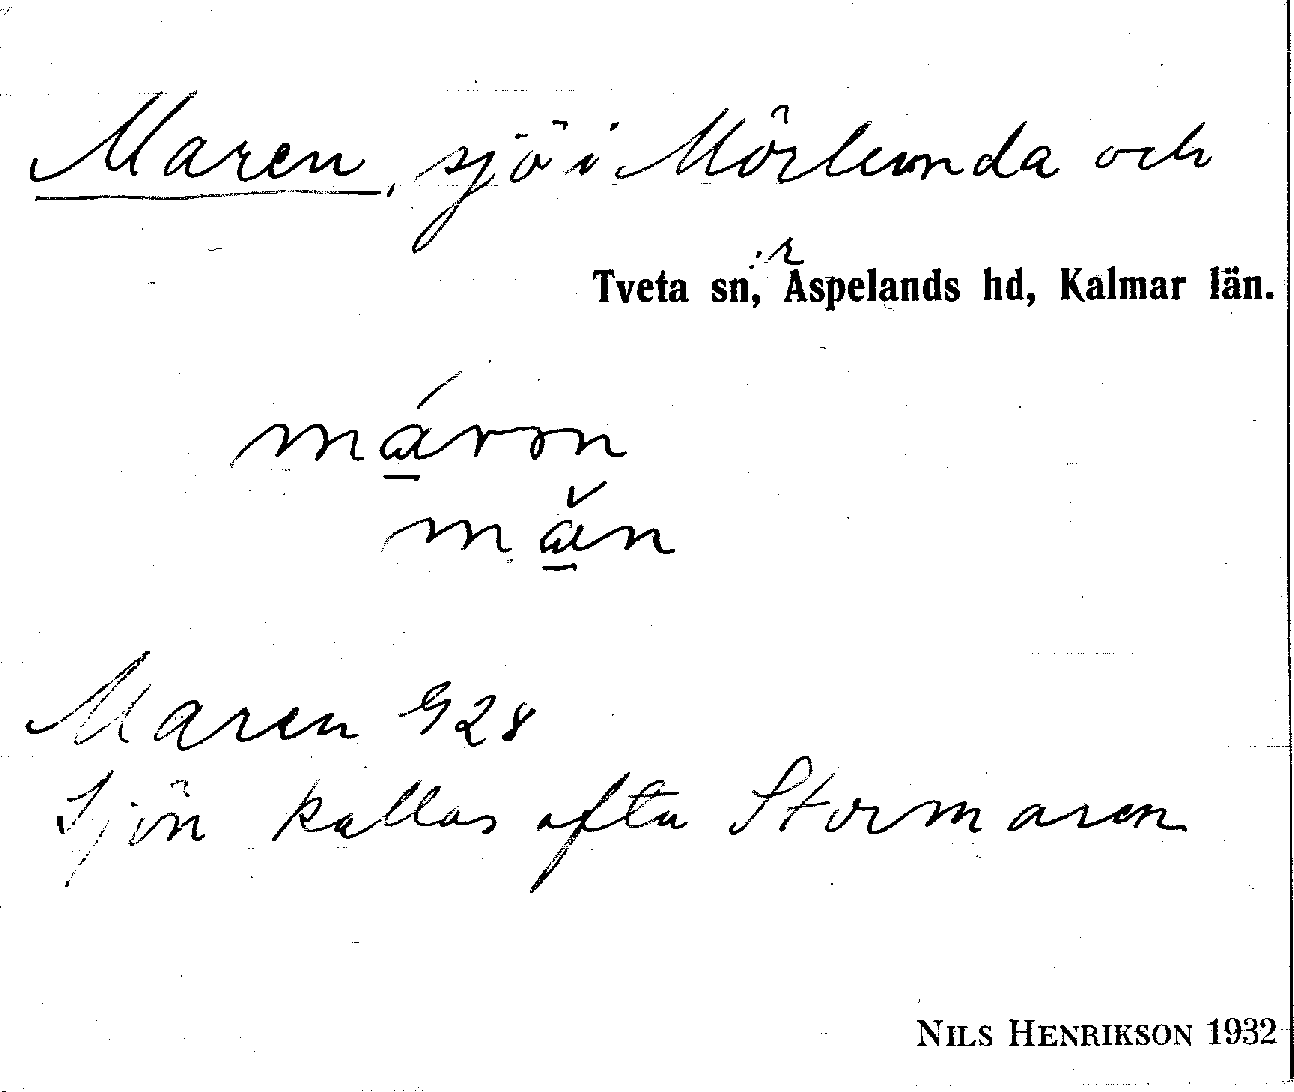 Maren, sjö i Mörlunda och
Tveta sn:r, Aspelands hd, Kalmar län.
máron
mǎn
Maren G28
Sjön kallas ofta Stormaren
NILS HENRIKSON 1932